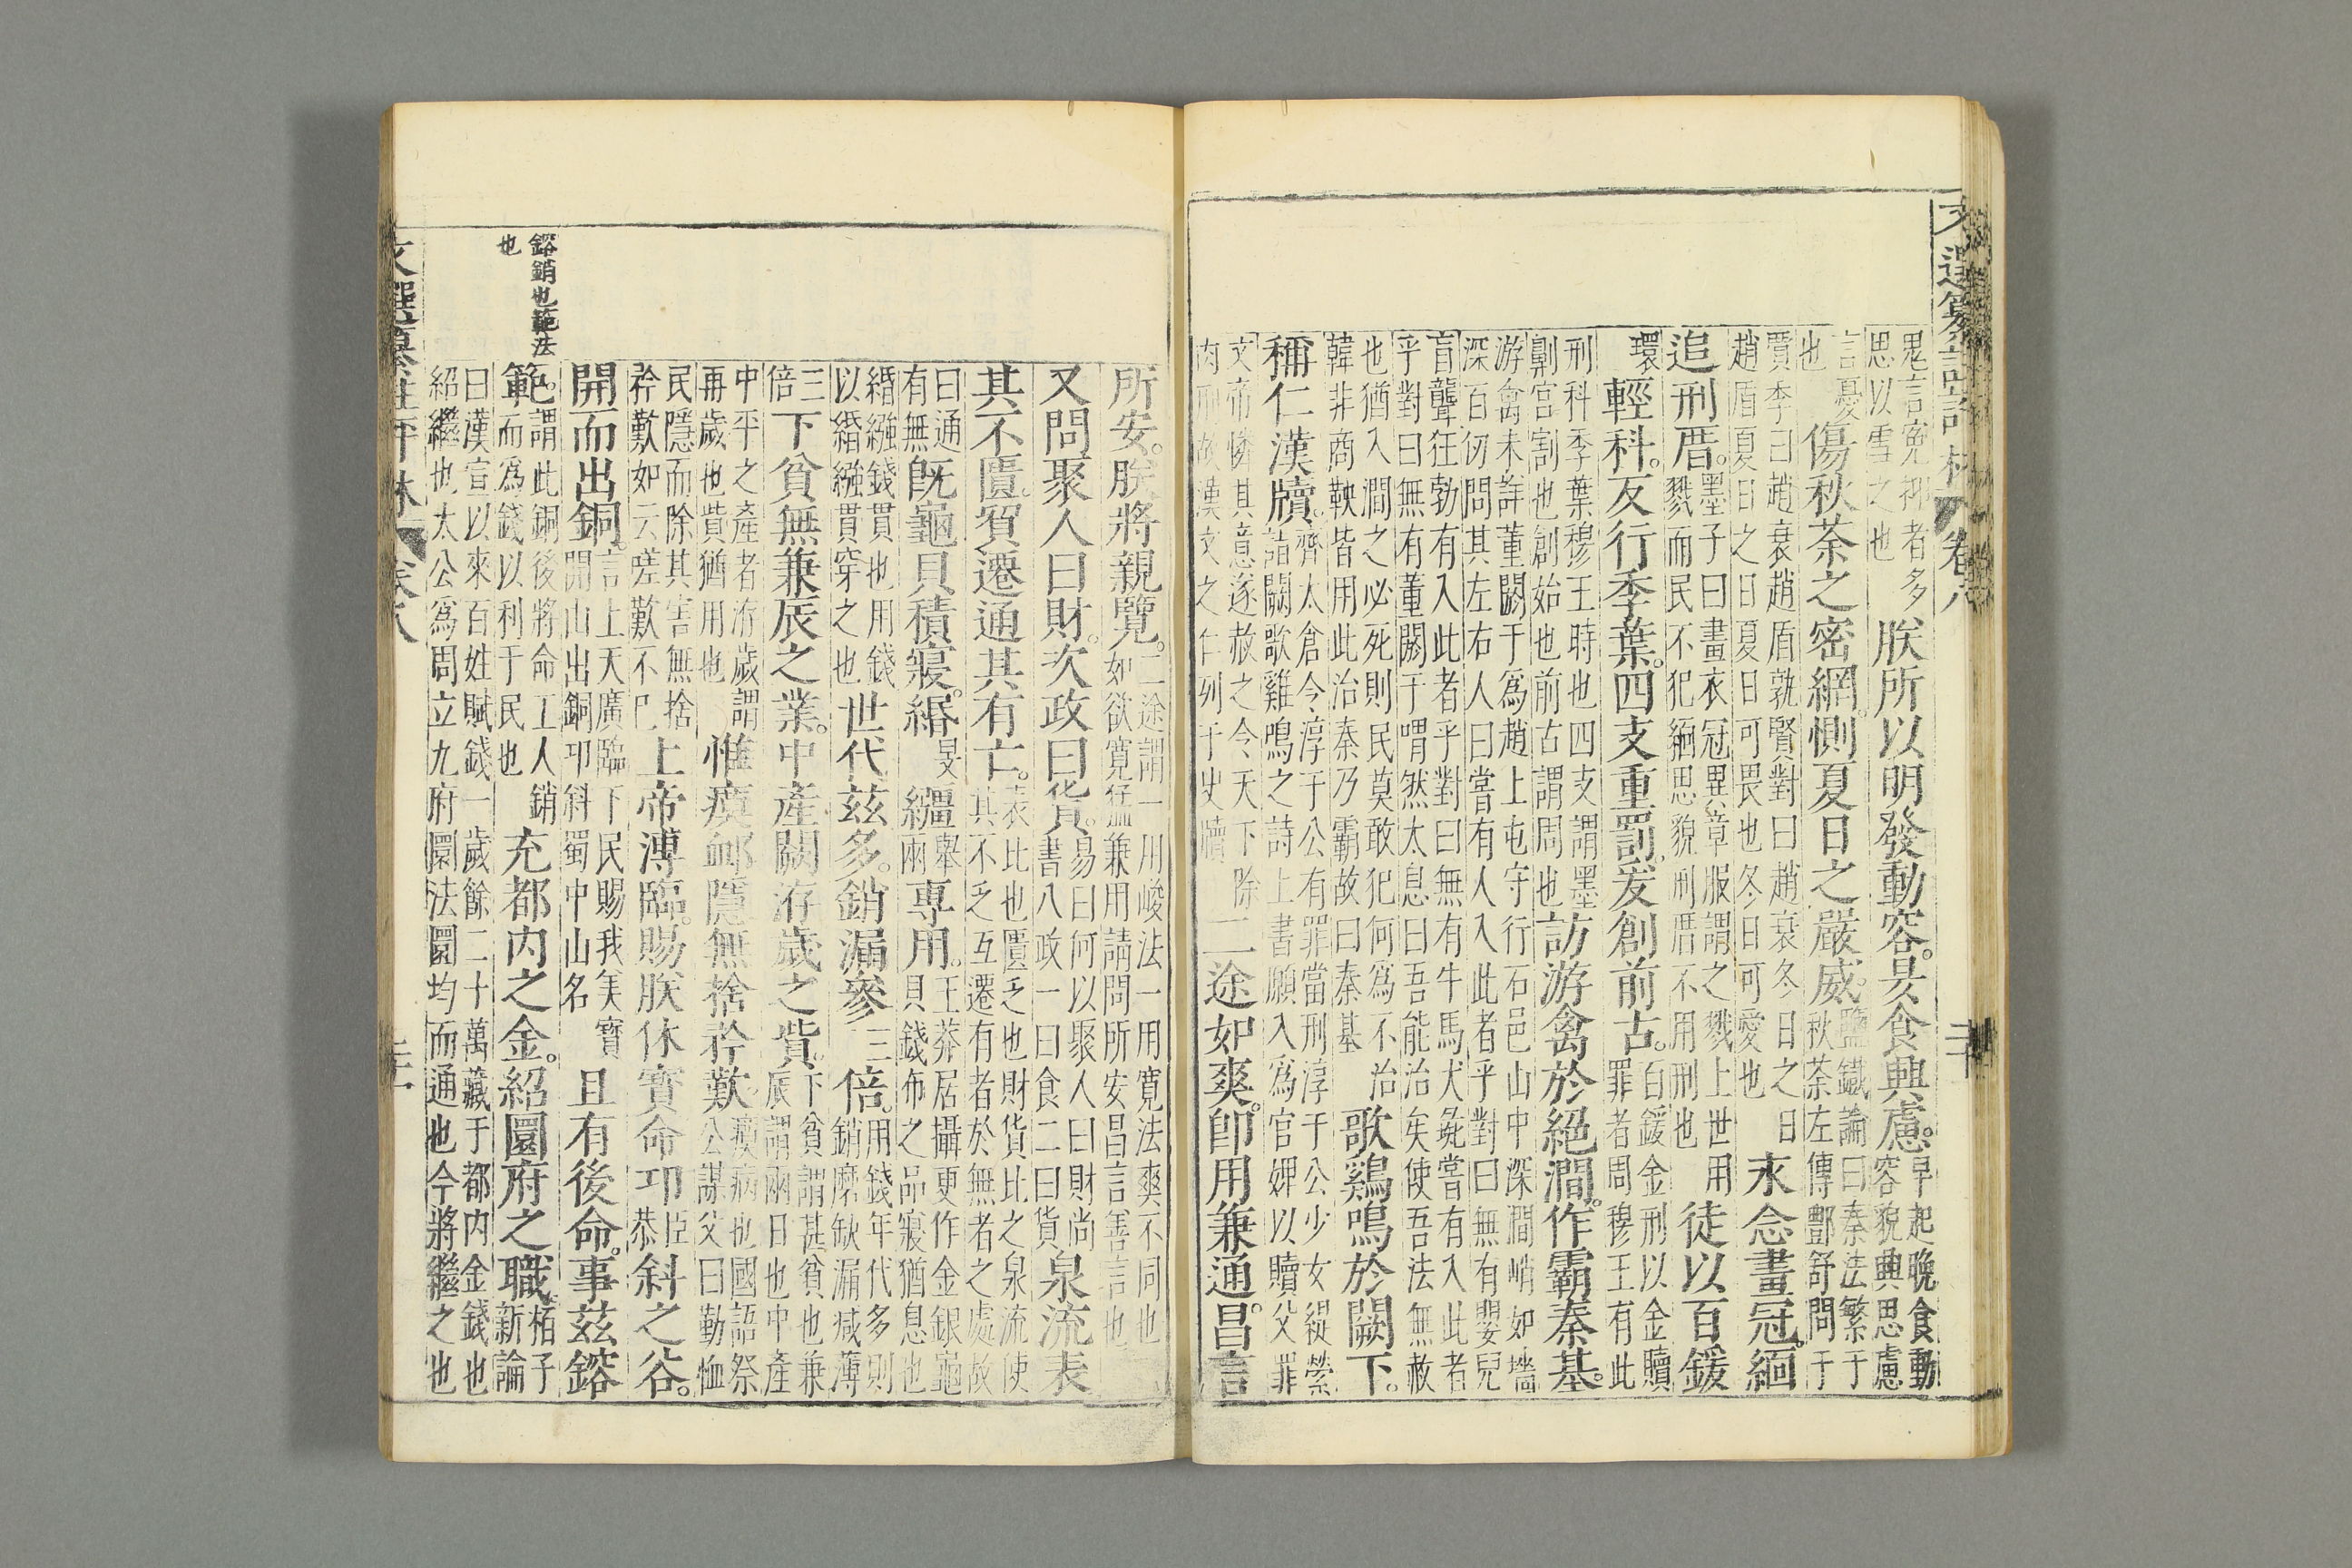 文選纂註評林 卷八
鬼言寃抑者多
思以雪之也
朕所以明發動容。昃食興慮。
早起晚食動
容貌興思慮
言憂
也
傷秋荼之密網。惻夏日之嚴威。
鹽鐵論曰秦法繁于
秋荼左傳酆舒問于
賈季曰趙衰趙盾孰賢對曰趙衰冬日之日
趙盾夏日之日夏日可畏也冬日可愛也
永念畫冠。緬
追刑厝。
墨子曰畫衣冠異章服謂之戮上世用
戮而民不犯緬思貌刑厝不用刑也
徒以百鍰
環
輕科。反行季葉。四支重罰爰創前古。
百鍰金刑以金贖
罪者周穆王有此
刑科季葉穆王時也四支謂墨
劓宮割也創始也前古謂周也
訪游禽於絶澗。作霸秦基。
游禽未詳董閼于爲趙上屯守行石邑山中深澗峭如墻
深百仞問其左右人曰嘗有人入此者乎對曰無有嬰兒
盲聾狂勃有入此者乎對曰無有牛馬犬彘嘗有入此者
乎對曰無有董閼于喟然太息曰吾能治矣使吾法無赦
也猶入澗之必死則民莫敢犯何爲不治
韓非商鞅皆用此治秦乃霸故曰秦基
歌鷄鳴於闕下。
稱仁漢牘。
齊太倉令淳于公有罪當刑淳于公少女緹縈
詣闕歌雞鳴之詩上書願入爲官婢以贖父罪
文帝憐其意遂赦之令天下除
肉刑故漢文之仁列于史牘
二途如爽。即用兼通。昌言
所安。朕將親覽。
二途謂一用峻法一用寛法爽不同也
如欲寛猛兼用請問所安昌言善言也
又問聚人曰財。次政曰貨。
易曰何以聚人曰財尚
書八政一曰食二曰貨
泉流表
其不匱。貿遷通其有亡。
表此也匱乏也財貨比之泉流使
其不乏互遷有者於無者之處故
曰通
有無
既龜貝積寢。緡
旻
繦
舉
兩
專用。
王莽居攝更作金銀龜
貝錢布之品寢猶息也
緡繦錢貫也用錢
以緡繦貫穿之也
世代茲多。銷漏參
三
倍。
用錢年代多則
銷磨缺漏減薄
三
倍
下貧無兼辰之業。中産闕洊歲之貲。
下貧謂甚貧也兼
辰謂兩日也中産
中平之産者洊歲謂
再歲也貲猶用也
惟瘼䘏隱。無捨矜歎。
瘼病也國語祭
公謀父曰勤恤
民隱而除其害無捨
矜歎如云嗟歎不已
上帝溥臨。賜朕休寶。命卭
臣
恭
斜之谷。
開而出銅。
言上天廣臨下民賜我美寶
開山出銅卭斜蜀中山名
且有後命。事茲鎔
範。
謂此銅後將命工人銷
而爲錢以利于民也
充都内之金。紹圜府之職。
栢子
新論
曰漢宣以來百姓賦錢一歲餘二十萬藏于都内金錢也
紹繼也太公爲周立九府圜法圜均而通也今將繼之也
鎔銷也範法
也
文選纂註評林 卷八